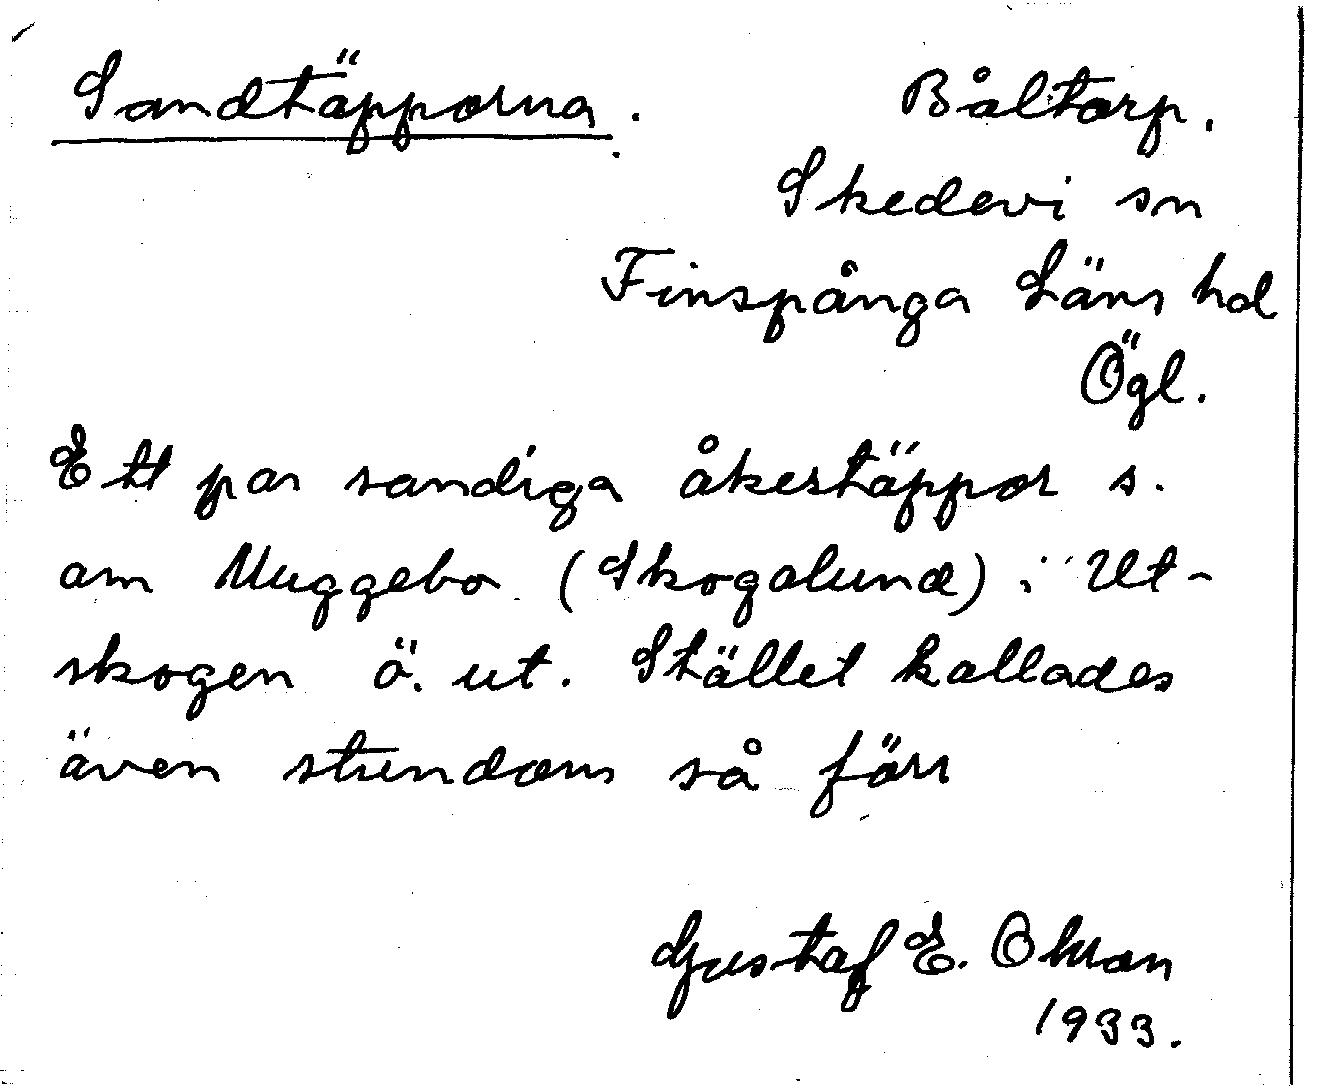 Sandtäpporna. Båltorp.
Skedevi sn
Finspånga Läns hd
Ögl.
Ett par sandiga åkertäppor s.
om Muggebo (Skogalund) i Ut-
skogen ö. ut. Stället kallades
även stundom så förr
Gustaf E. Ohlson
1933.